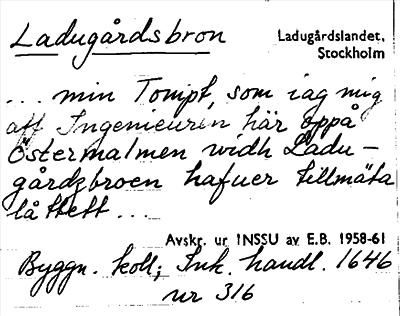 Ladugårdsbron
Ladugårdslandet,
Stockholm
... min Tompt, som iag mig
aff Ingenieuren här oppå
Östermalmen widh Ladu-
gårdzbroen hafuer tillmäta
låttett ...
Avskr. ur INSSU av E.B. 1958-61
Byggn. koll; Ink. handl. 1646
nr 316